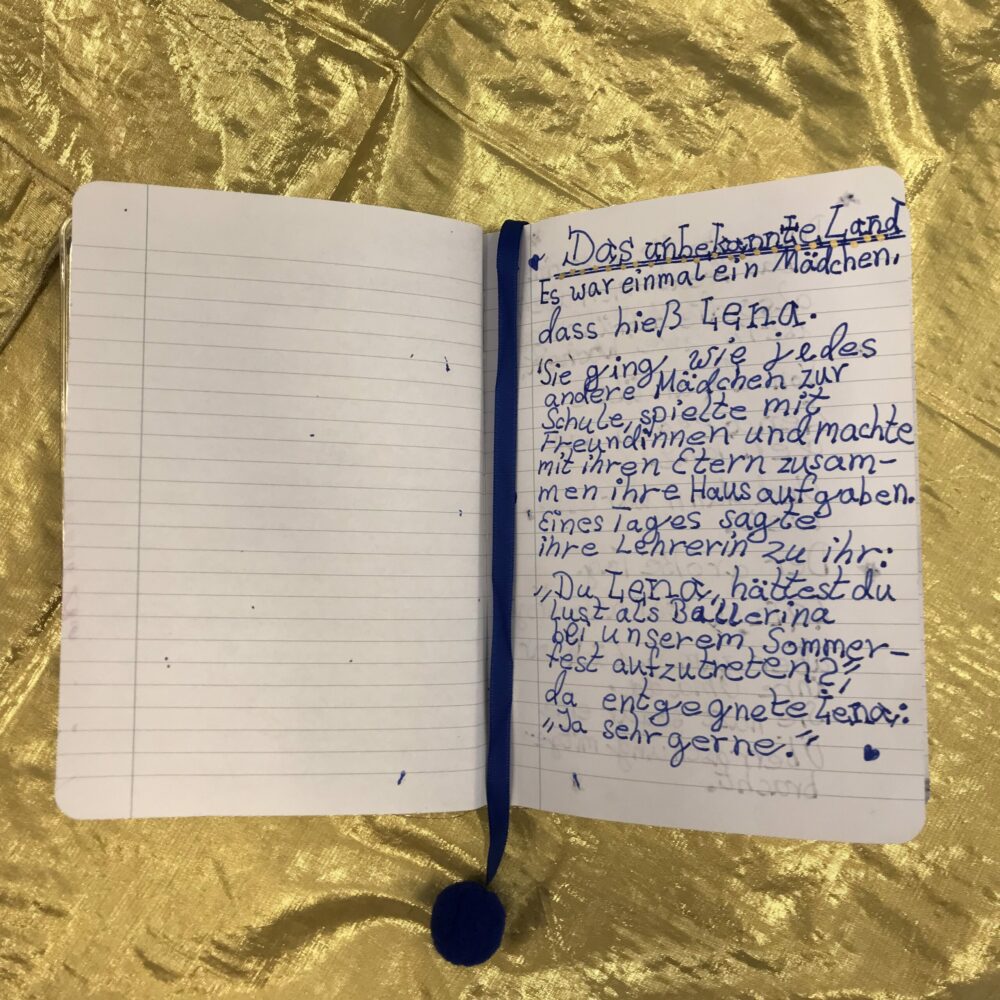 Das unbekannte Land
Es war einmal ein Mädchen,
dass hieß Lena.
Sie ging, wie jedes
andere Mädchen zur
Schule, spielte mit
Freundinnen und machte
mit ihren Etern zusam-
men ihre Hausaufgaben.
Eines Tages sagte
ihre Lehrerin zu ihr:
„Du Lena, hättest du
Lust als Ballerina
bei unserem Sommer-
fest aufzutreten?",
da entgegnete Lena:
„Ja sehr gerne."